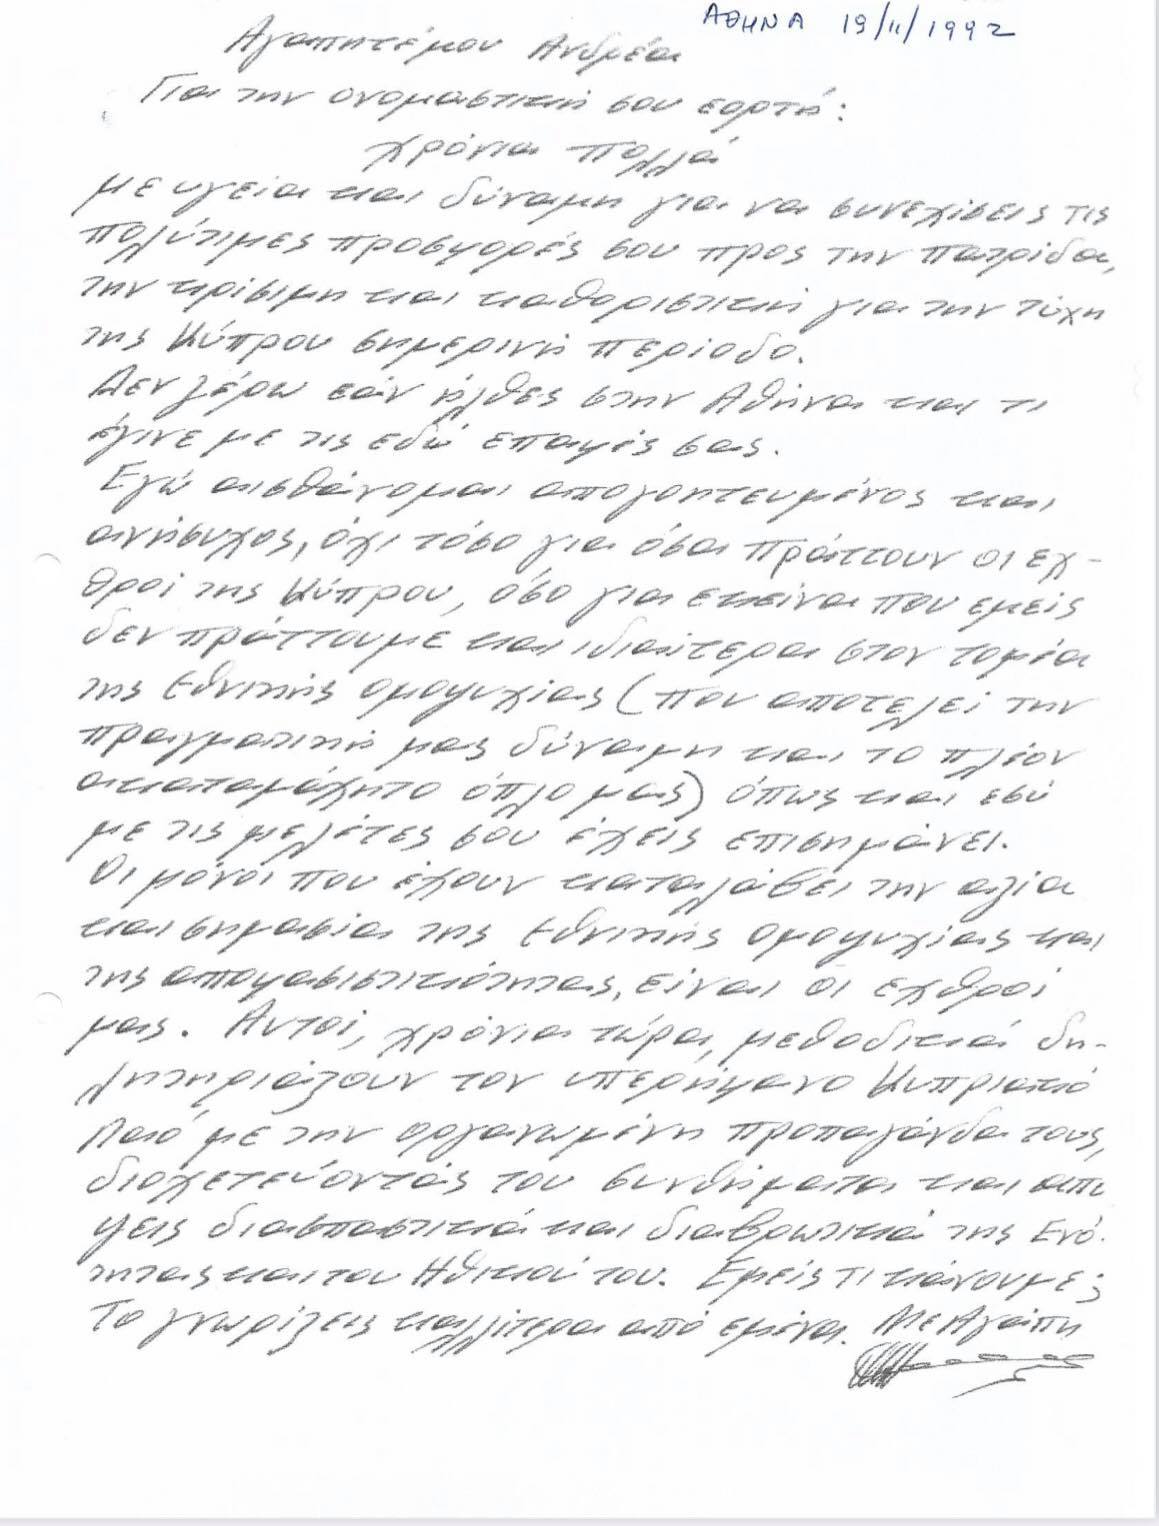 ΑΘΗΝΑ 19/11/1992
Αγαπητέ μου Ανδρέα
Για την ονομαστική σου εορτή:
χρόνια πολλά
με υγεία και δύναμη για να συνεχίσεις τις
πολύτιμες προσφορές σου προς την πατρίδα,
την κρίσιμη και καθοριστική για την τύχη
της Κύπρου σημερινή περίοδο.
Δεν ξέρω εάν ήλθες στην Αθήνα και τι
έγινε με τις εδώ επαφές σας.
Εγώ αισθάνομαι απογοητευμένος και
ανήσυχος, όχι τόσο για όσα πράττουν οι εχ-
θροί της Κύπρου, όσο για εκείνα που εμείς
δεν πράττουμε και ιδιαίτερα στον τομέα
της εθνικής ομοψυχίας (που αποτελεί την
πραγματική μας δύναμη και το πλέον
ακαταμάχητο όπλο μας) όπως και εσύ
με τις μελέτες σου έχεις επισημάνει.
Οι μόνοι που έχουν καταλάβει την αξία
και σημασία της εθνικής ομοψυχίας και
της αποφασιστικότητας, είναι οι εχθροί
μας. Αυτοί, χρόνια τώρα, μεθοδικά δη-
λητηριάζουν τον υπερήφανο Κυπριακό
Λαό με την οργανωμένη προπαγάνδα τους,
διοχετεύοντάς του συνθήματα και
διασπαστικά και διαβρωτικά της Ενό-
τητας και του Ηθικού του. Εμείς τι κάνουμε;
Το γνωρίζεις καλλίτερα από εμένα. Με Αγάπη